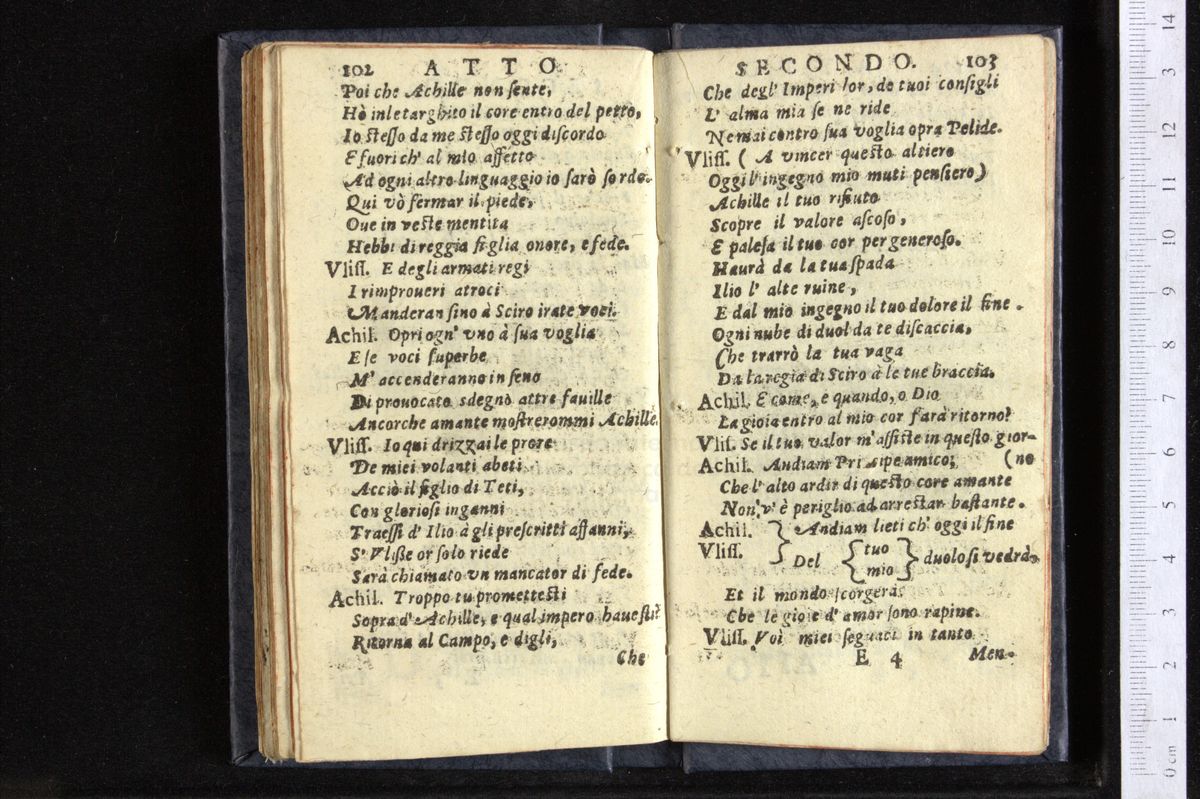 102 ATTO
Poi che Achille non ſente,
Hò inletarghito il core entro del petto,
Io ſteſſo da me ſteſſo oggi diſcordo
E fuori ch' al mio affetto
Ad ogni altro linguaggio io ſarò ſordo.
Qui vò fermar il piede,
Oue in veſte mentita
Hebbi di reggia figlia onore, e fede.
Vliſſ. E degli armati regi
I rimproueri atroci
Manderan ſino à Sciro irate voci.
Achil. Opri ogn' vno à ſua voglia
E ſe voci ſuperbe
M' accenderanno in ſeno
Di prouocato sdegno attre fauille
Ancorche amante moſtrerommi Achille.
Vliſſ. Io qui drizzai le prore
De miei volanti abeti
Acciò il figlio di Teti,
Con glorioſi inganni
Traeſſi d' Ilio à gli preſcritti affanni,
S' Vliſſe or ſolo riede
Sara chiamato vn mancator di fede.
Achil. Troppo tu prometteſti
Sopra d' Achille, e qual impero haueſti?
Ritorna al Campo, e digli,
Che
SECONDO. 103
Che degl' Imperi lor, de tuoi conſigli
L' alma mia ſe ne ride
Ne mai contro ſua voglia opra Pelide.
Vliſſ. ( A vincer queſto altiero
Oggi l' ingegno mio muti penſiero)
Achille il tuo rifiuto
Scopre il valore aſcoſo,
E paleſa il tuo cor per generoſo.
Haurà da la tua ſpada
Ilio l' alte ruine,
E dal mio ingegno il tuo dolore il fine.
Ogni nube di duol da te diſcaccia,
Che trarrò la tua vaga
Da la regia di Sciro à le tue braccia.
Achil. E come, e quando, o Dio
La gioia entro al mio cor farà ritorno?
Vliſ. Se il tuo valor m' aſſiſte in queſto gior-
Achil. Andiam Principe amico; (no
Che l' alto ardir di queſto core amante
Non v' è periglio ad arreſtar baſtante.
Achil. } Andiam lieti ch' oggi il fine
Vliſſ. } Del { tuo mio } duolo ſi vedrà,
Et il mondo ſcorgerà
Che le gioie d' amor ſono rapine.
Vliſſ. Voi miei ſeguaci in tanto
E 4 Men-